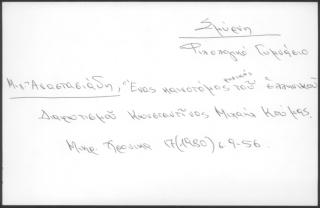 Σμύρνη
Φιλολογικό Γυμνάσιο
Μιχ. Αναστασιάδη, "Ένας καινοτόμος του ελληνικού
Διαφωτισμού Κωνσταντίνος Μιχαήλ Κούμας,
Μικρ. Χρονικά 17 (1980) 9-56.